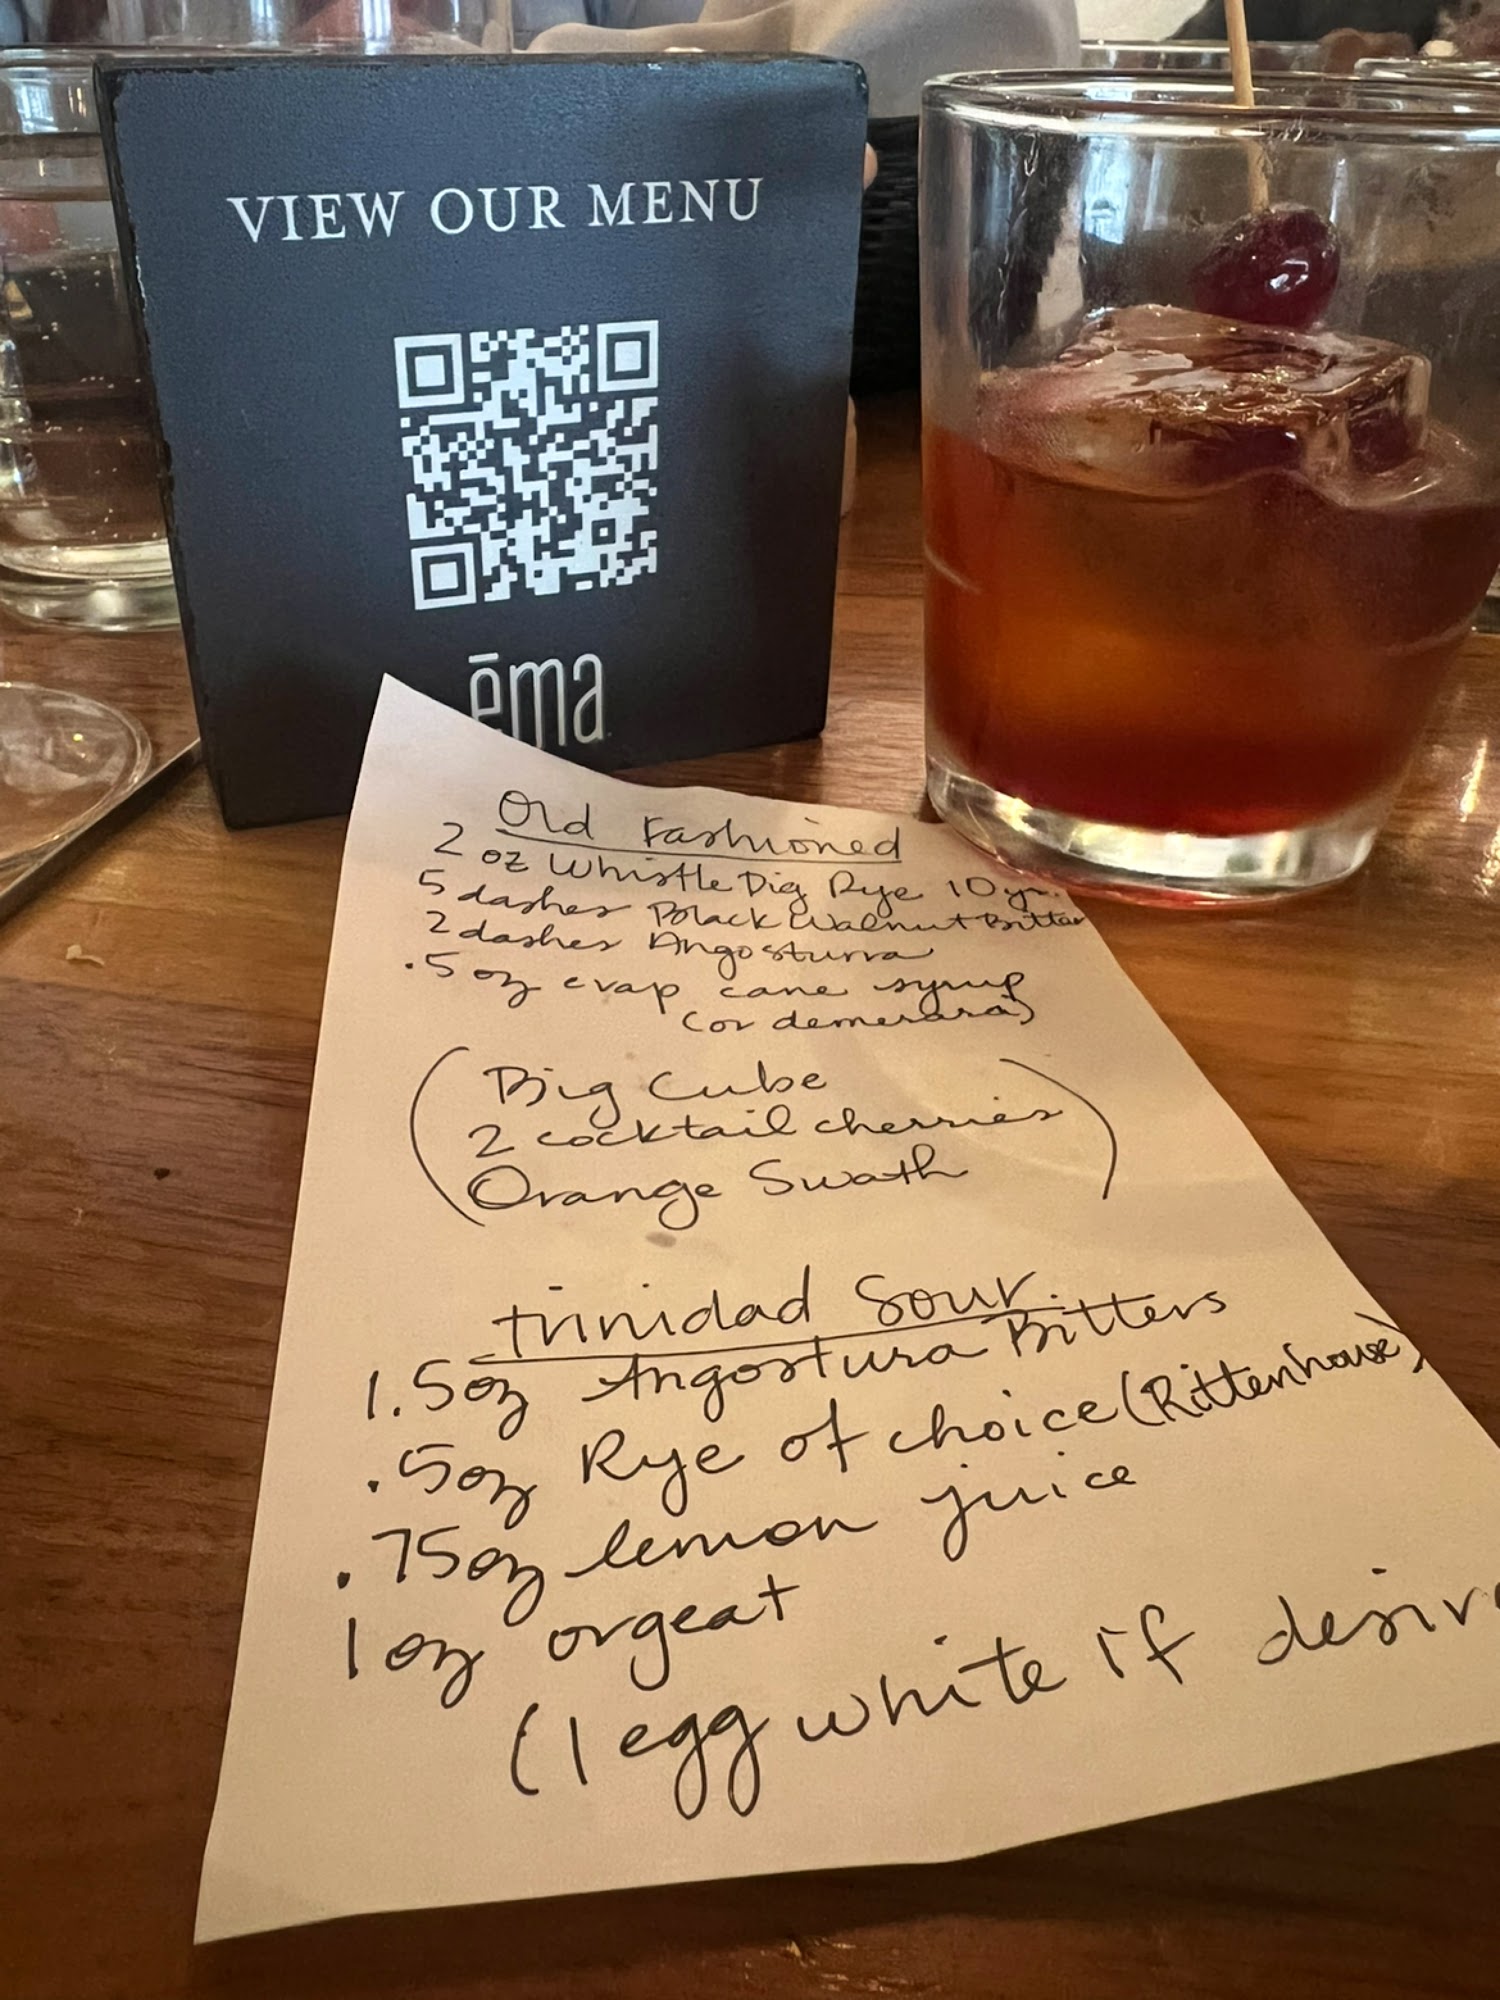 VIEW OUR MENU
ēma
Old Fashioned
2 oz WhistlePig Rye 10 yr.
5 dashes Black Walnut Bitter
2 dashes Angosturra
.5 oz evap cane syrup
(or demerara)
(Big Cube
2 cocktail cherries
Orange Swath)
Trinidad Sour.
1.5oz Angostura Bitters
.5oz Rye of choice (Rittenhouse)
.75oz lemon juice
1 oz orgeat
(1 egg white if desir